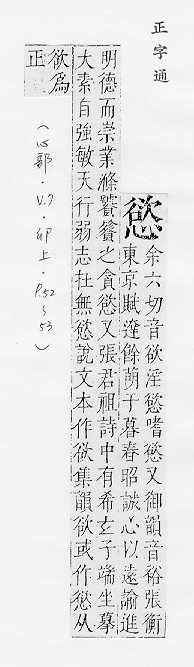 正字通
慾
余六切音欲淫慾嗜慾又御韻音裕張衡
東京賦達餘萠于暮春昭誠心以遠諭進
明德而崇業滌饕餮之貪慾又張君祖詩中有希玄子端坐摹
大素自強敏天行弱志杜無慾說文本作欲集韻欲或作慾从
欲為
正
(心部．V.7．卯上．P.52~53)